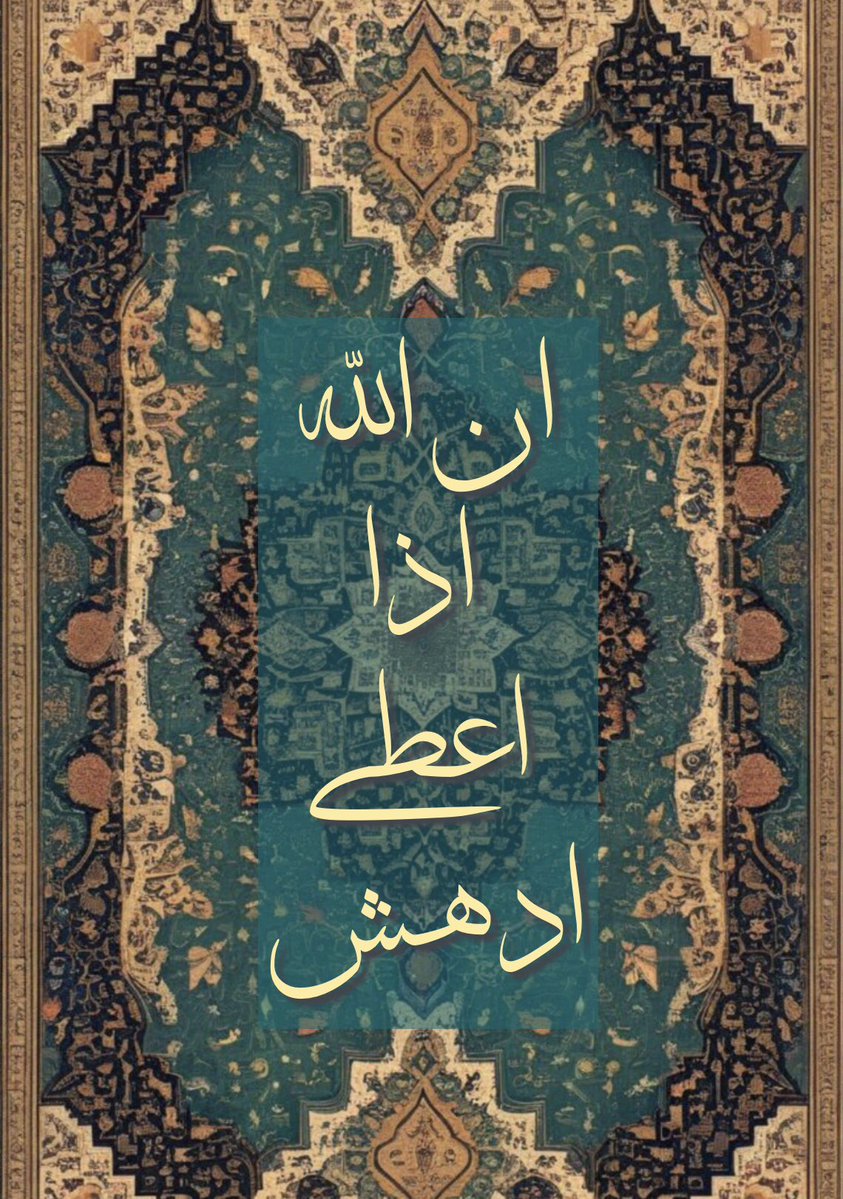 ان اللّٰه
اذا
اعطى
ادهش